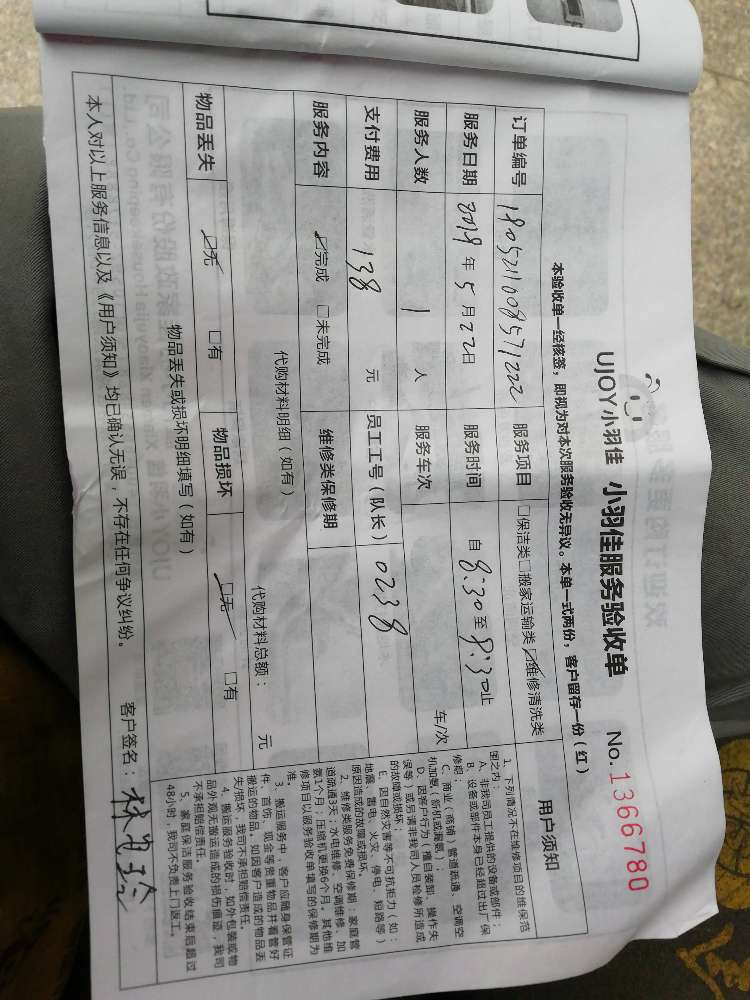 UJOY小羽佳 小羽佳服务验收单 No.1366780
本验收单一经核签，即视为对本次服务验收无异议。本单一式两份，客户留存一份（红）
订单编号 180521100857122 服务项目 □保洁类□搬家运输类☑维修清洗类
服务日期 2018年5月22日 服务时间 自8:30至9:30止
服务人数 1 人 服务车次 车/次
支付费用 138 元 员工工号（队长） 0238
服务内容 ☑完成 □未完成 维修类保修期
代购材料明细（如有） 代购材料总额： 元
物品丢失 ☑无 □有 物品损坏 ☑无 □有
物品丢失或损坏明细填写（如有）
本人对以上服务信息以及《用户须知》均已确认无误，不存在任何争议纠纷。 客户签名：
用户须知
1、下列情况不在维修项目的维保范
围之内：
A、非我司员工提供的设备或部件；
B、设备或部件本身已经超过出厂保
修期；
C、商业（商铺）管道疏通、空调空
机加氨（新机或漏氨）；
D、因客户行为（擅自装卸、操作失
误等）或另请非我司人员检修所造成
的故障或损坏；
E、因自然灾害等不可抗拒力（如：
地震、雷电、火灾、停电、短路等）
原因造成的故障或损坏。
2、维修类服务免费保修期：家庭管
道疏通3天，水电维修、空调维修、加
氨1个月，压缩机更换6个月。其他维
修项目以服务验收单填写的保修期为
准。
3、搬运服务中，客户应随身保管证
件、首饰、现金等贵重物品并看管好
搬运的物品。如因客户造成的物品丢
失损坏，我司不承担赔偿责任。
4、搬运服务验收时，如外包装或物
品外观无搬运造成的损伤痕迹，我司
不承担赔偿责任。
5、家庭保洁服务验收结束后超过
48小时，我司不负责上门返工。